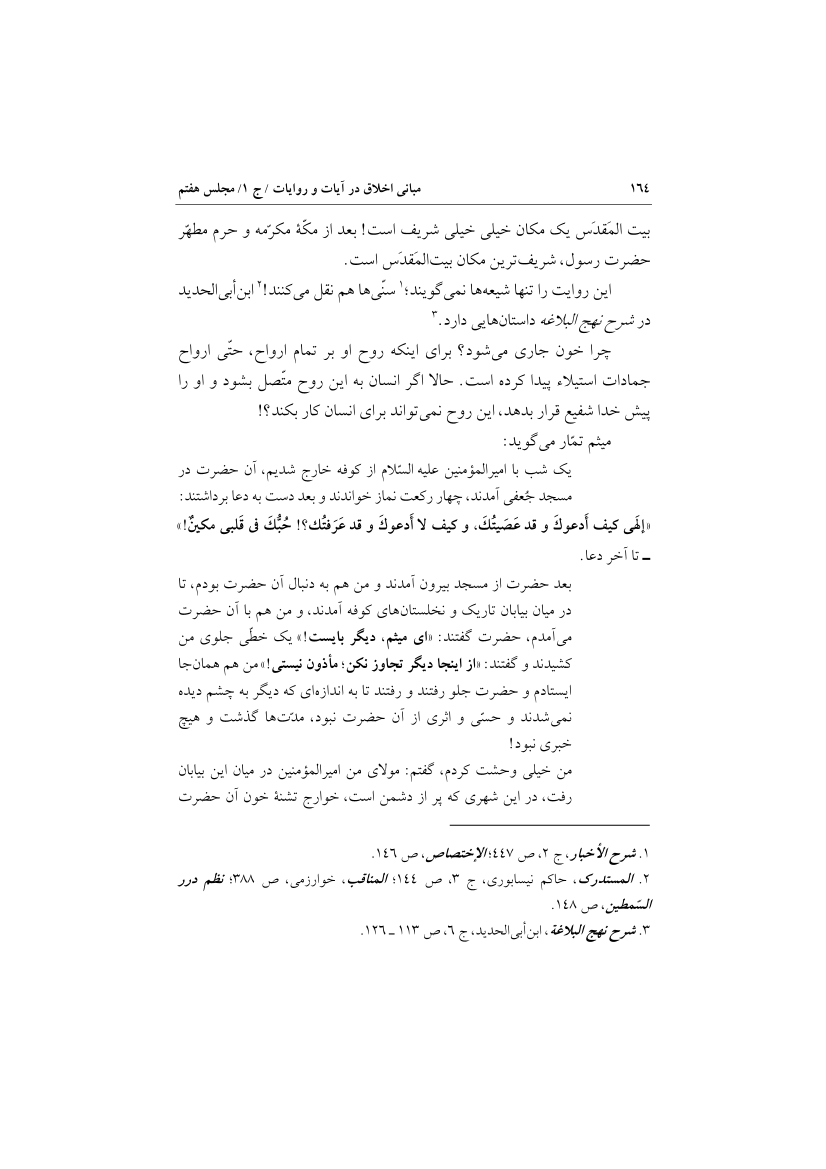 ١٦٤ مبانی اخلاق در آیات و روایات / ج ١/ مجلس هفتم
بیت المَقدَس یک مکان خیلی خیلی شریف است! بعد از مکّهٔ مکرّمه و حرم مطهّر
حضرت رسول، شریف‌ترین مکان بیت‌المَقدَس است.
این روایت را تنها شیعه‌ها نمی‌گویند؛١ سنّی‌ها هم نقل می‌کنند!٢ ابن‌أبی‌الحدید
در شرح نهج البلاغه داستان‌هایی دارد.٣
چرا خون جاری می‌شود؟ برای اینکه روح او بر تمام ارواح، حتّی ارواح
جمادات استیلاء پیدا کرده است. حالا اگر انسان به این روح متّصل بشود و او را
پیش خدا شفیع قرار بدهد، این روح نمی‌تواند برای انسان کار بکند؟!
میثم تمّار می‌گوید:
یک شب با امیرالمؤمنین علیه السّلام از کوفه خارج شدیم، آن حضرت در
مسجد جُعفی آمدند، چهار رکعت نماز خواندند و بعد دست به دعا برداشتند:
«إلَهی کیف أدعوكَ و قد عَصَیتُكَ، و کیف لا أدعوكَ و قد عَرَفتُك؟! حُبُّكَ فی قَلبی مکینٌ!»
ـ تا آخر دعا.
بعد حضرت از مسجد بیرون آمدند و من هم به دنبال آن حضرت بودم، تا
در میان بیابان تاریک و نخلستان‌های کوفه آمدند، و من هم با آن حضرت
می‌آمدم، حضرت گفتند: «ای میثم، دیگر بایست!» یک خطّی جلوی من
کشیدند و گفتند: «از اینجا دیگر تجاوز نکن؛ مأذون نیستی!» من هم همان‌جا
ایستادم و حضرت جلو رفتند و رفتند تا به اندازه‌ای که دیگر به چشم دیده
نمی‌شدند و حسّی و اثری از آن حضرت نبود، مدّت‌ها گذشت و هیچ
خبری نبود!
من خیلی وحشت کردم، گفتم: مولای من امیرالمؤمنین در میان این بیابان
رفت، در این شهری که پر از دشمن است، خوارج تشنهٔ خون آن حضرت
١. شرح الأخبار، ج ٢، ص ٤٤٧؛ الإختصاص، ص ١٤٦.
٢. المستدرک، حاکم نیسابوری، ج ٣، ص ١٤٤؛ المناقب، خوارزمی، ص ٣٨٨؛ نظم درر
السّمطین، ص ١٤٨.
٣. شرح نهج البلاغة، ابن‌أبی‌الحدید، ج ٦، ص ١١٣ ـ ١٢٦.